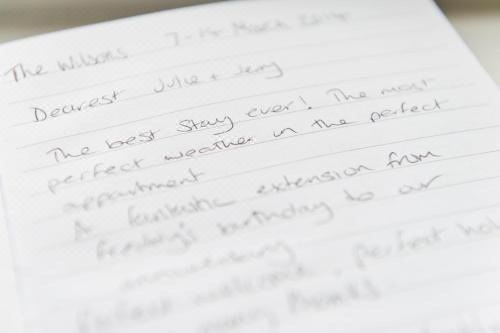 The Wilsons 7-14 March 2014
Dearest Julie + Jerry
The best stay ever! The most
perfect weather in the perfect
appartment
A fantastic extension from
Freddy's birthday to our
anniversary
perfect welcome, perfect
many thanks